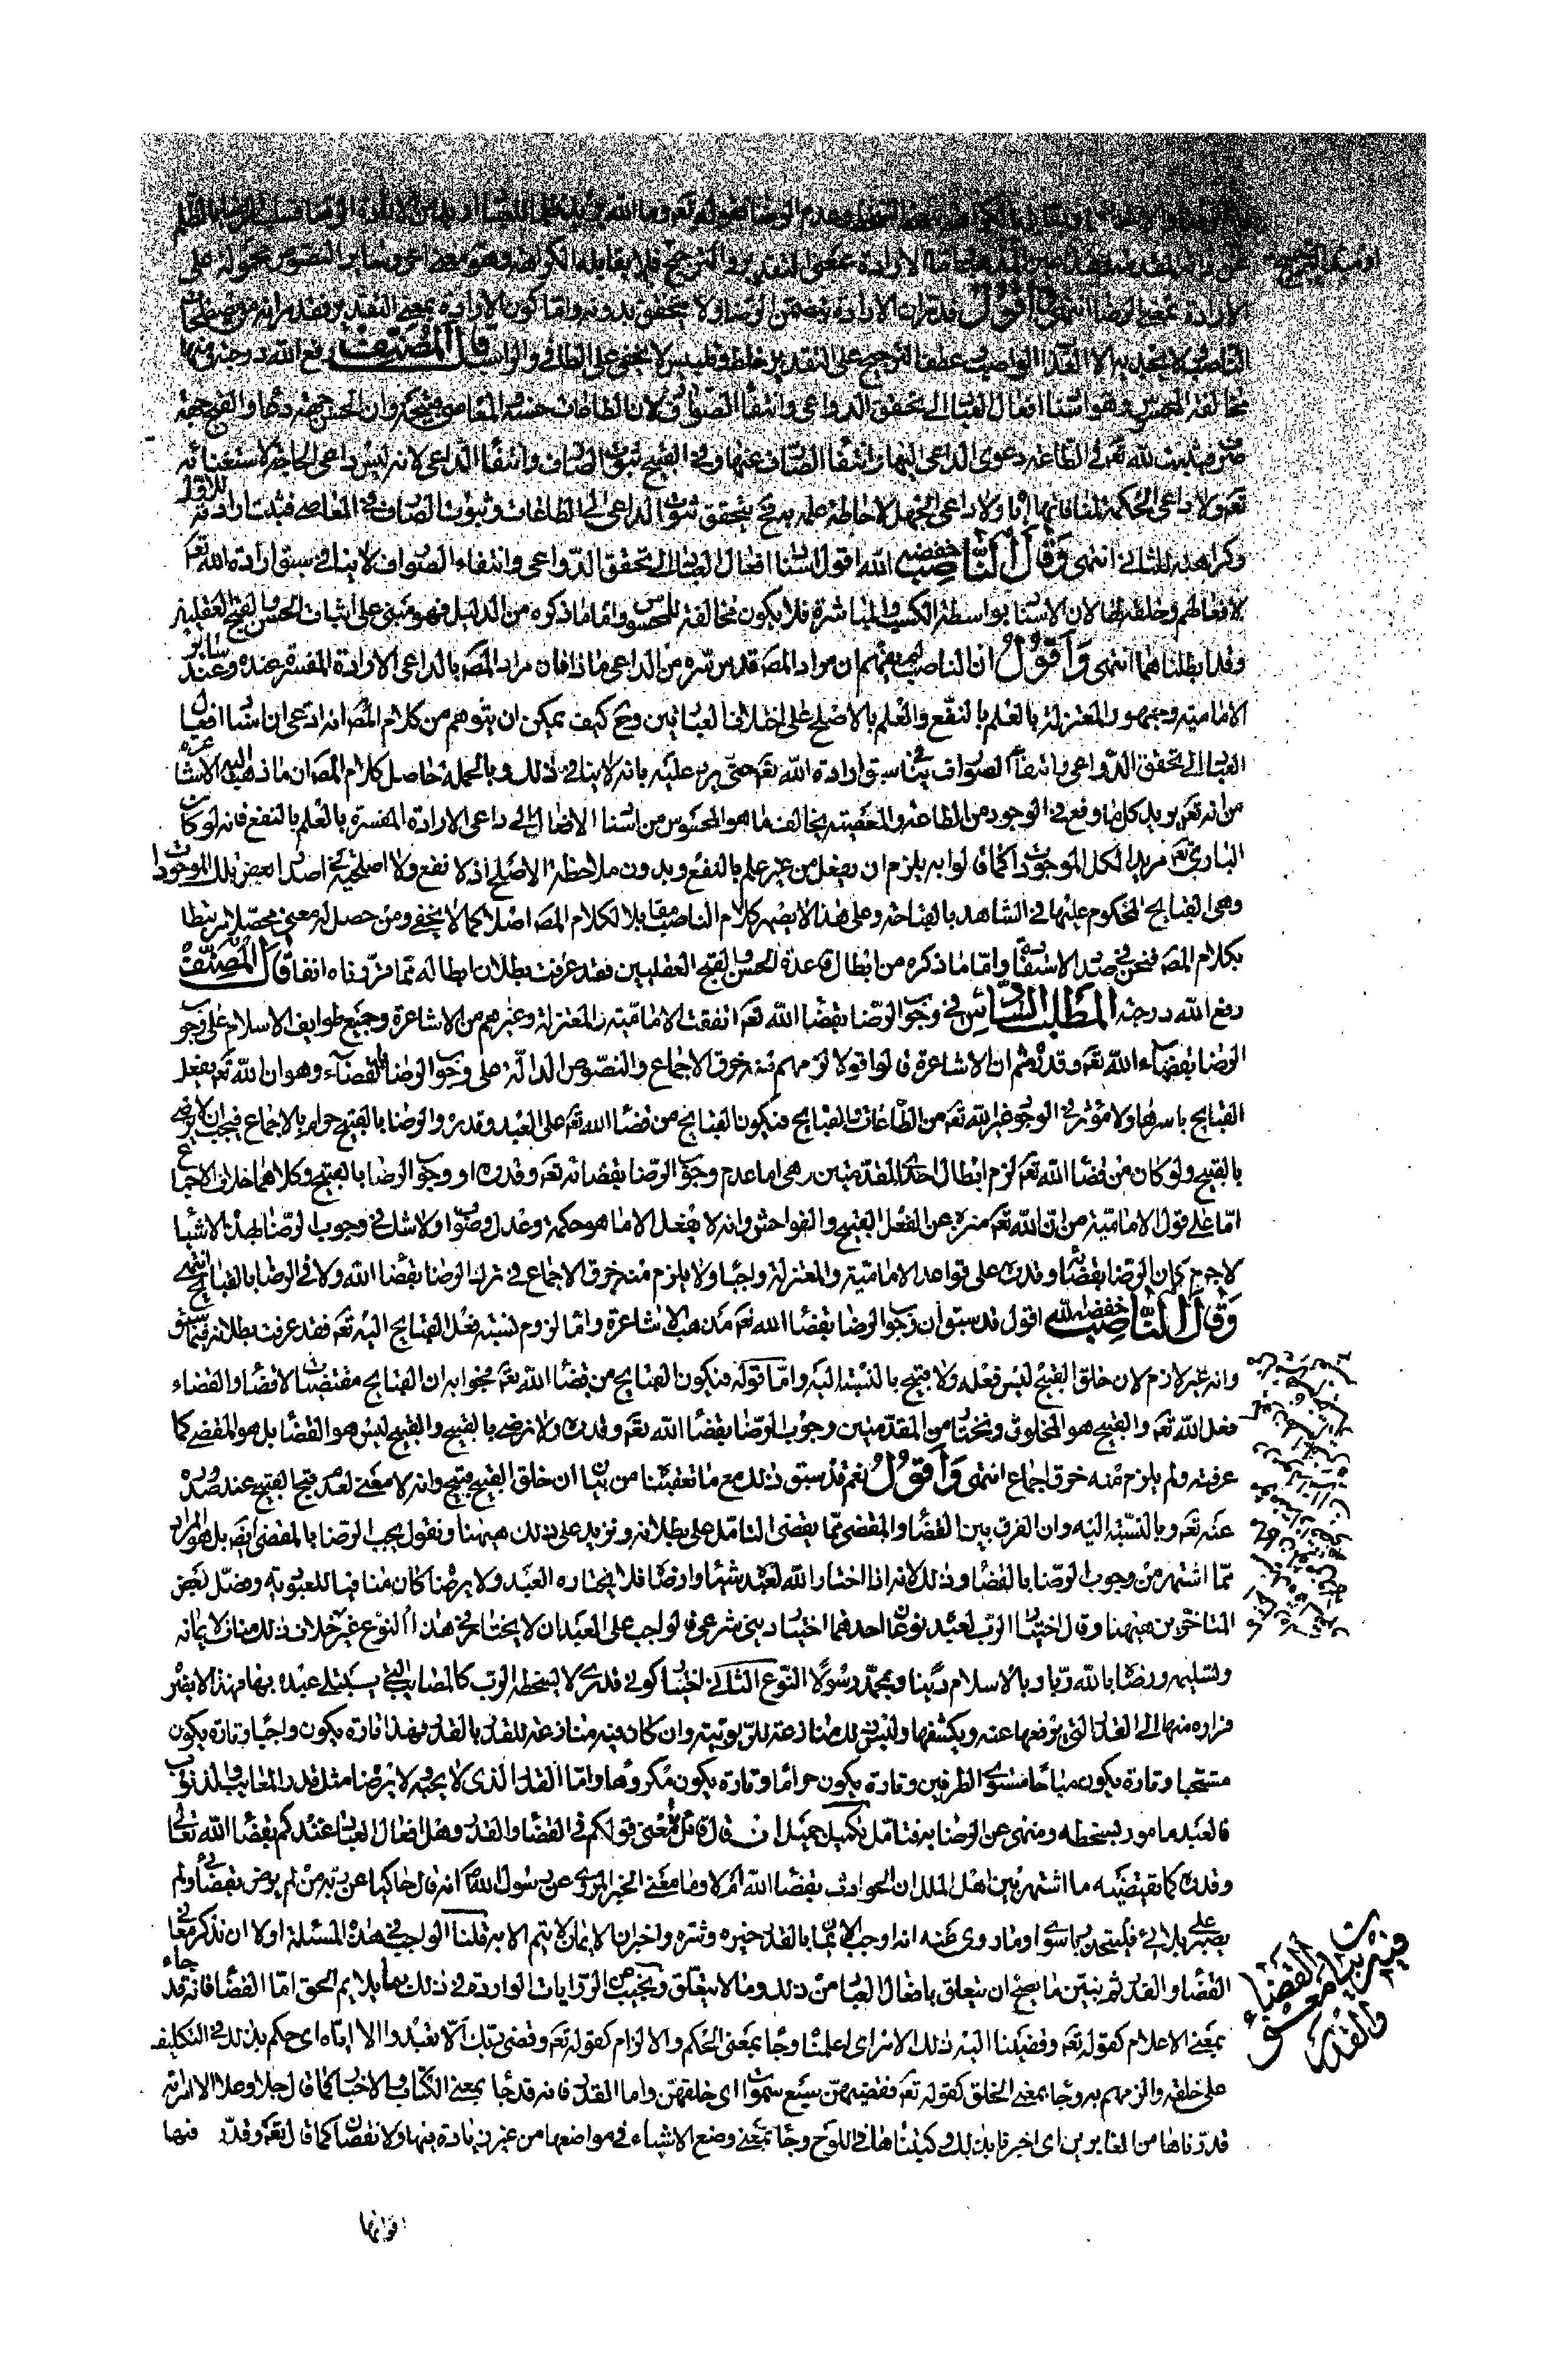 الارادة بمعنى الرضا انتهى وأقول قد مر ان الارادة يتضمن الرضا ولا يتحقق بدونه واما كون الارادة بمعنى التقدير فقد مر انه من مخترعات
الناصب لا يجديه الا عطف الترجيح على التقدير خلط وتلبيس لا يخفى على الطافي والراسب قال المصنف رفع الله درجته ومنها
مخالفة المحسوس وهو استناد افعال العباد الى تحقق الدواعي وانتفاء الصوارف لان الطاعات حسنة والمعاصي قبيحة وان الحسن جهة دعاء والقبح جهة
صرف فيثبت لله تعه في الطاعة دعوى الداعي اليها وانتفاء الصارف عنها وفي القبيح ثبوت الصارف وانتفاء الداعي لانه ليس داعي الحاجة لاستغنائه
تعه ولا داعي الحكمة لمنافاتها اياه ولا داعي الجهل لاحاطة علمه به فح يتحقق ثبوت الداعي الى الطاعات وثبوت الصارف في المعاصي فثبت ارادته للاول
وكراهته للثاني انتهى وقال الناصب خفضه الله اقول استناد افعال العباد الى تحقق الدواعي وانتفاء الصوارف لا ينافي سبق ارادة الله تعه
لافعالهم وخلقه لها لان الاستناد بواسطة الكسب والمباشرة فلا يكون مخالفة للمحسوس واما ما ذكره من الدليل فهو مبنى على اثبات الحسن والقبح العقليين
وقد ابطلناهما انتهى وأقول ان الناصب لم يفهم ان مراد المصه قدس سره من الداعي ماذا فان مراد المصه بالداعي الارادة المفسرة عنده وعند سائر
الامامية وجمهور المعتزلة بالعلم بالنفع والعلم بالاصلح على اختلاف العبارتين وح كيف يمكن ان يتوهم من كلام المصه انه ادعى ان استناد افعال
العباد الى تحقق الدواعي وانتفاء الصوارف ينافي سبق ارادة الله تعه حتى يرد عليه بانه لا ينافي ذلك وبالجملة حاصل كلام المصه ان ما ذهب اليه الاشاعرة
من انه تعه يريد كل ما وقع في الوجود من الطاعة والمعصية يخالف ما هو المحسوس من استناد الافعال الى داعي الارادة المفسرة بالعلم بالنفع فانه لو كان
الباري تعه مريدا لكل الموجودات كما قالوا به يلزم ان يفعل من غير علم بالنفع وبدون ملاحظة الاصلح اذ لا نفع ولا اصلحية في اصدار بعض تلك الموجودات
وهي القبايح المحكوم عليها في الشاهد بالقباحة وعلى هذا لا يصير كلام الناصب مقابلا لكلام المصه اصلا كما لا يخفى ومن حصل له معنى محصل لربطه
بكلام المصه فنحن في صدد الاستفادة واما ما ذكره من ابطال قاعدة الحسن والقبح العقليين فقد عرفت بطلان ابطاله مما قررناه انفا قال المصنف
رفع الله درجته المطلب السادس في وجوب الرضا بقضاء الله تعه اتفقت الامامية والمعتزلة وغيرهم من الاشاعرة وجميع طوايف الاسلام على وجوب
الرضا بقضاء الله تعه وقدره ثم ان الاشاعرة قالوا قولا لزمهم منه خرق الاجماع والنصوص الدالة على وجوب الرضا بالقضاء وهو ان الله تعه يفعل
القبايح باسرها ولا مؤثر في الوجود غير الله تعه من الطاعات والقبايح فيكون القبايح من قضاء الله تعه على العبد وقدره والرضا بالقبيح حرام بالاجماع فيجب ان لا يرضى
بالقبيح ولو كان من قضاء الله تعه لزم ابطال احدى المقدمتين وهي اما عدم وجوب الرضا بقضائه تعه وقدره او وجوب الرضا بالقبيح وكلاهما خلاف الاجماع
اما على قول الامامية من ان الله تعه منزه عن الفعل القبيح والفواحش وانه لا يفعل الا ما هو حكمة وعدل وصواب ولا شك في وجوب الرضا بهذه الاشياء
لا جرم كان الرضا بقضائه وقدره على قواعد الامامية والمعتزلة واجبا ولا يلزم منه خرق الاجماع في ترك الرضا بقضاء الله ولا في الرضا بالقبايح انتهى
وقال الناصب خفضه الله اقول قد سبق ان وجوب الرضا بقضاء الله تعه مذهب الاشاعرة واما لزوم نسبة فعل القبايح اليه تعه فقد عرفت بطلانه فيما سبق
وانه غير لازم لان خلق القبيح ليس فعله ولا قبيح بالنسبة اليه واما قوله فيكون القبايح من قضاء الله تعه فجوابه ان القبايح مقتضيات لا قضاء والقضاء
فعل الله تعه والقبيح هو المخلوق ونختار من المقدمتين وجوب الرضا بقضاء الله تعه وقدره ولا نرضى بالقبيح والقبيح ليس هو القضاء بل هو المقضي كما
عرفته ولم يلزم منه خرق اجماع انتهى وأقول نعم قد سبق ذلك مع ما تعقبنا من بيان ان خلق القبيح قبيح وانه لا معنى لعدم قبح القبيح عند صدوره
عنه تعه وبالنسبة اليه وان الفرق بين القضاء والمقضي مما يقضي التامل على بطلانه ونزيد على ذلك ههنا ونقول يجب الرضا بالمقضي ايضه بل هو المراد
مما اشتهر من وجوب الرضا بالقضاء وذلك لانه اذا اختار الله لعبد شيئا وارضاه فلا يختاره العبد ولا يرضاه كان منافيا للعبودية وفصل بعض
المتاخرين ههنا وقال اختيار الرب لعبده نوعان احدهما اختيار ديني شرعي فالواجب على العبد ان لا يختار في هذا النوع غير خلاف ذلك مناف لايمانه
وتسليمه ورضاه بالله ربا وبالاسلام دينا وبمحمد رسولا النوع الثاني اختيار كوني قدري لا يسخطه الرب كالمصائب التي يبتلي عبده بها فهذا لا يضر
فراره منها الى القدر الذي يرفعها عنه ويكشفها وليس في ذلك منازعة للربوبية وان كان فيه منازعة للقدر بالقدر فهذا تارة يكون واجبا وتارة يكون
مستحبا وتارة يكون مباحا مستوي الطرفين وتارة يكون حراما وتارة يكون مكروها واما القدر الذي لا يحبه ولا يرضاه مثل قدر المعايب والذنوب
فالعبد مامور بسخطه ومنهي عن الرضا به فتامل تكميل جميل ان قال قائل ما معنى قولكم في القضاء والقدر وهل افعال العباد عندكم بقضاء الله تعالى
وقدره كما يقتضيه ما اشتهر بين اهل الملل ان الحوادث بقضاء الله ام لا وما معنى الخبر المروي عن رسول الله ص انه قال حاكيا عن ربه من لم يرض بقضائي ولم
يصبر على بلائي فليتخذ ربا سوائي وما روى عنه انه اوجب الايمان بالقدر خيره وشره واخبر ان الايمان لا يتم الا به قلنا الواجب في هذه المسئلة اولا ان نذكر معاني
القضاء والقدر ثم نبين ما يصح ان يتعلق بافعال العباد من ذلك وما لا يتعلق ونجيب عن الروايات الواردة في ذلك بما يلايم الحق اما القضاء فانه قد جاء
بمعنى الاعلام كقوله تعه وقضينا اليه ذلك الامر اي اعلمناه وجاء بمعنى الحكم والالزام كقوله تعه وقضى ربك الا تعبدوا الا اياه اي حكم بذلك في التكليف
على خلقه والزمهم به وجاء بمعنى الخلق كقوله تعه فقضيهن سبع سموات اي خلقهن واما القدر فانه قد جاء بمعنى الكتاب والاخبار كما قال جل وعلا الا امراته
قدرناها من الغابرين اي اخبرنا بذلك وكتبناها في اللوح وجاء بمعنى وضع الاشياء في مواضعها من غير زيادة فيها ولا نقصان كما قال تعه وقدر فيها
اقواتها
فيه بيان معنى القضاء والقدر